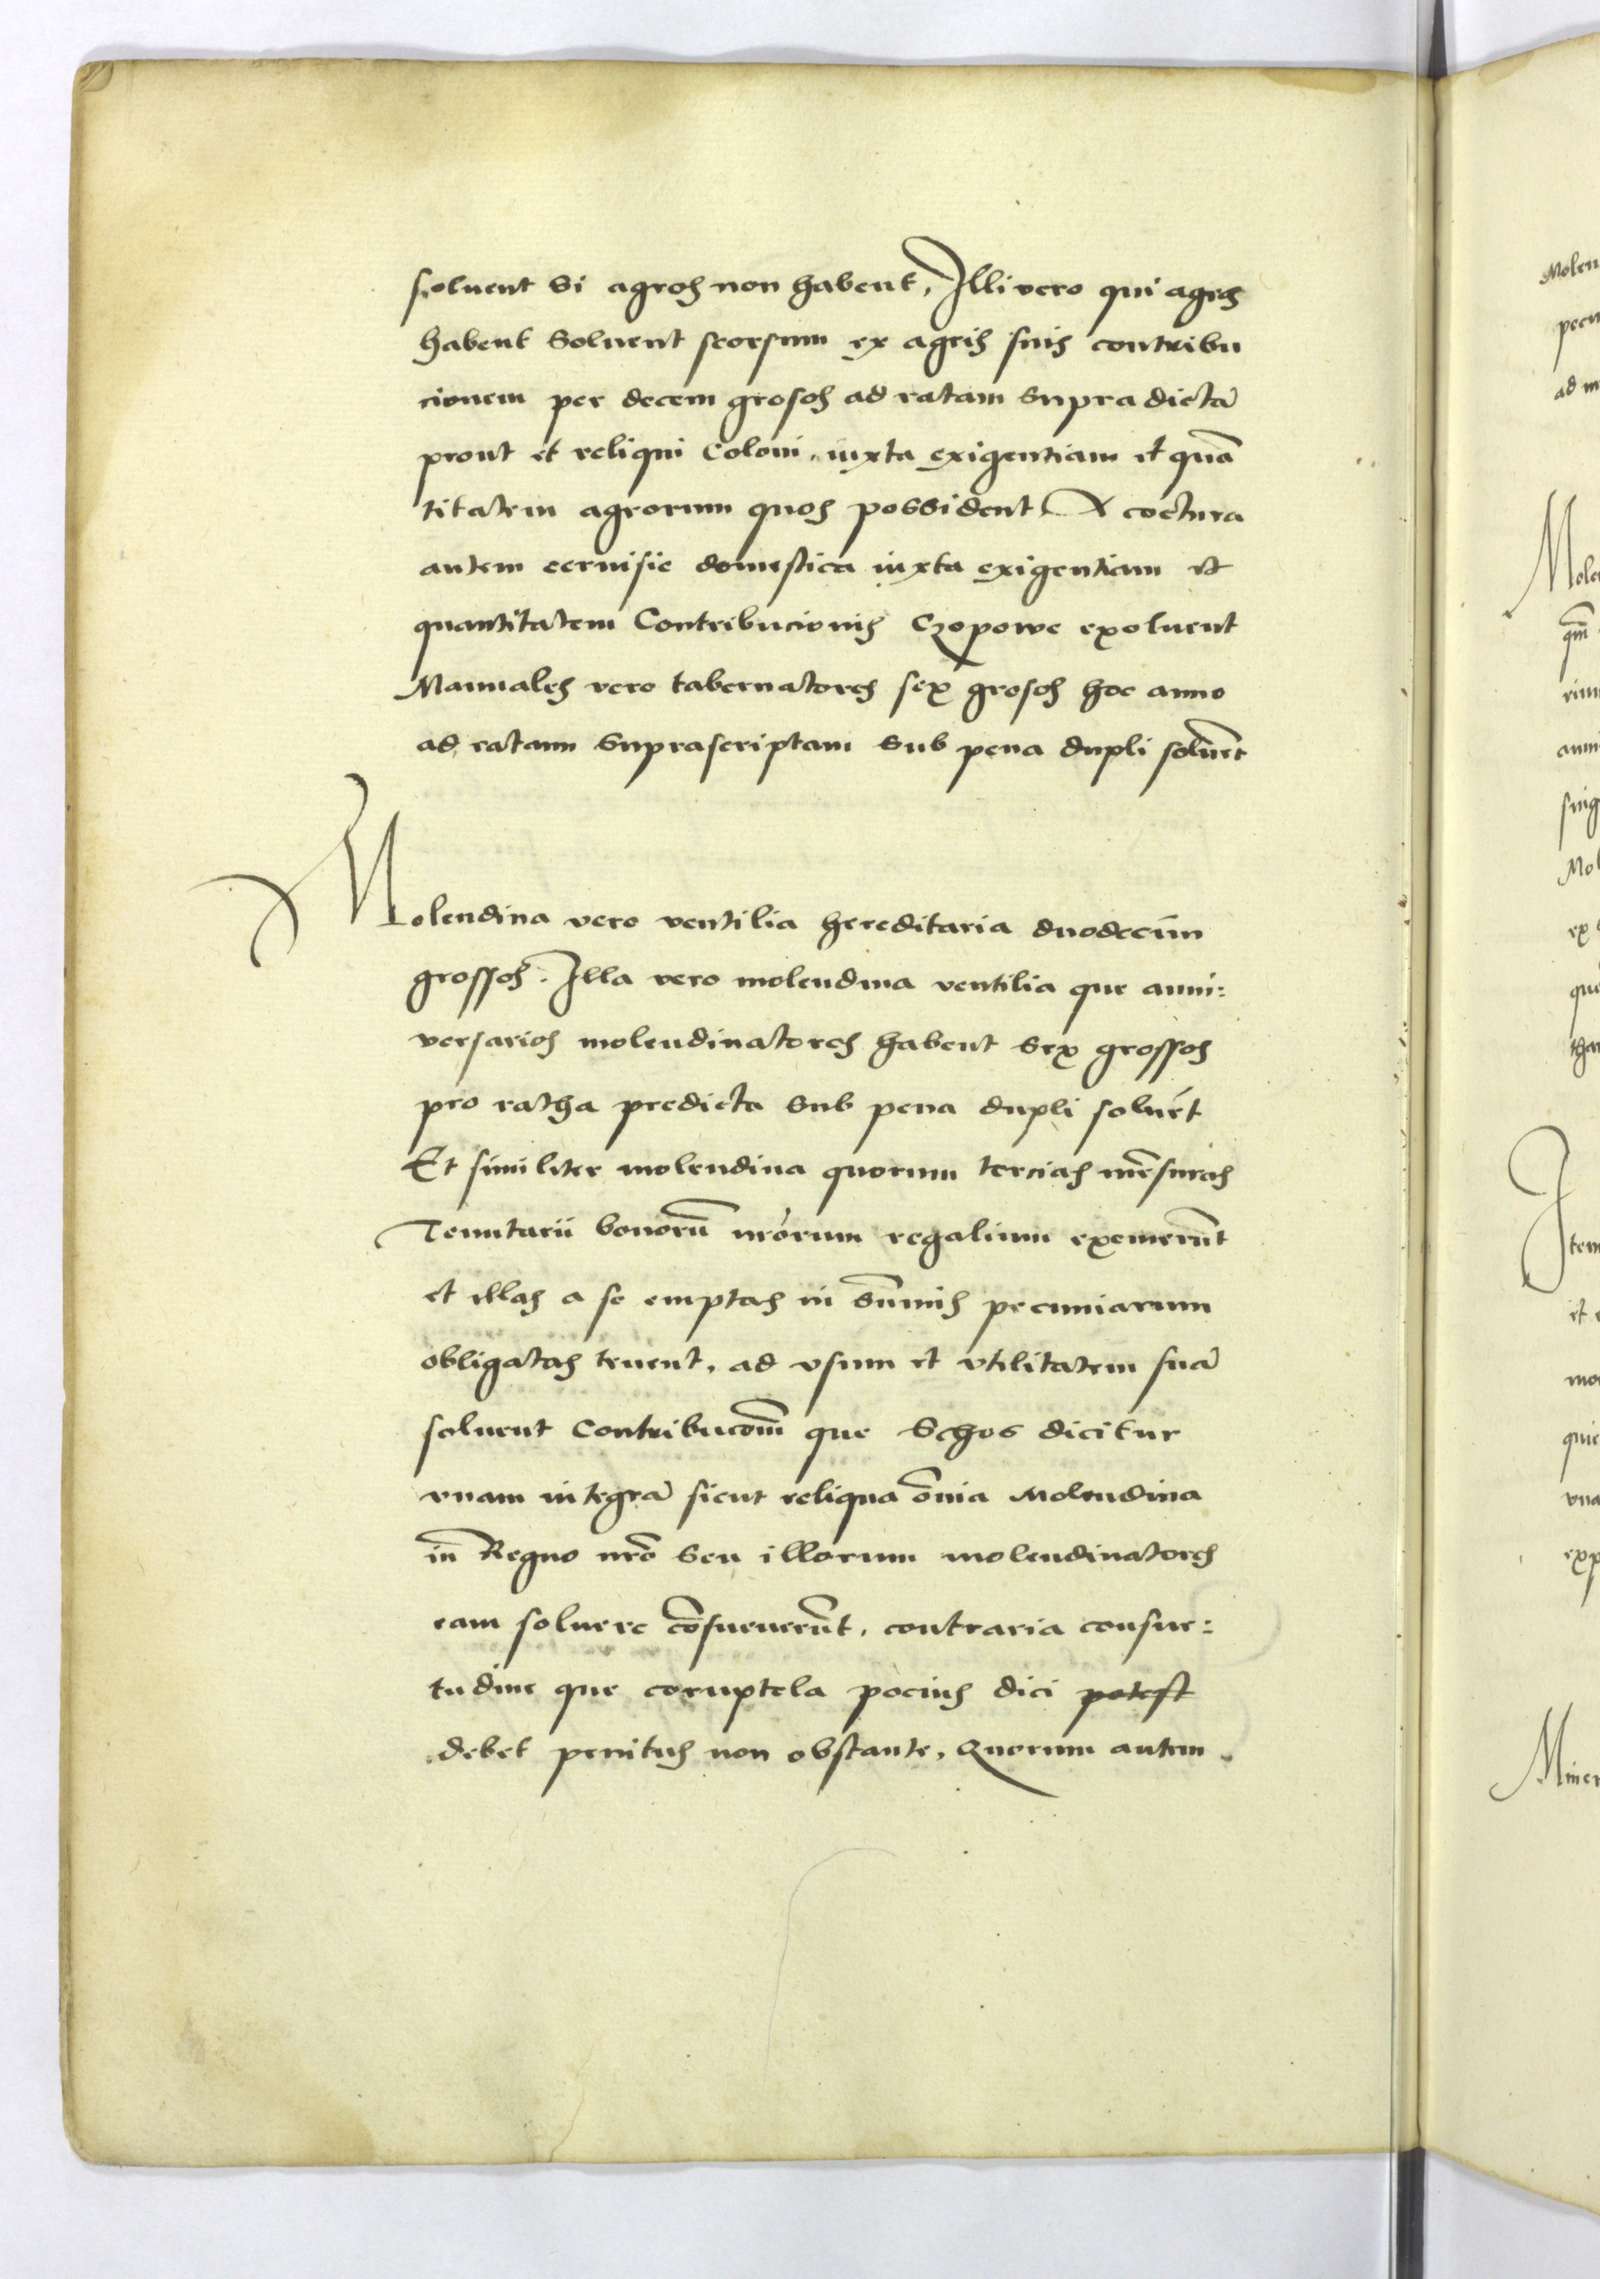 soluent Si agros non habent, Illi vero qui agros
habent Soluent seorsum ex agris suis contribu
cionem per decem grosos ad ratam Supra dictã
prout et reliqui Coloni, iuxta exigentiam et quã
titatem agrorum quos possident A coctura
autem ceruisie domestica iuxta exigentiam et
quantitatem Contribucionis Czopowe exoluent
Manuales vero tabernatores sex grosos hoc anno
ad ratam Suprascriptam Sub pena dupli soluẽt
Molendina vero ventilia hereditaria duodecim
grossos. Illa vero molendina ventilia que anni:
versarios molendinatores habent Sex grossos
pro ratha predicta Sub pena dupli soluẽt
Et similiter molendina quorum tercias mẽsuras
Tenutarii bonorũ nrõrum regalium exemerũt
et illas a se emptas in Sũmis pecuniarum
obligatas tenent, ad vsum et vtilitatem suã
soluent Contribucõm que Schos dicitur
vnam integrã sicut reliqua õnia Molendina
in Regno nrõ Seu illorum molendinatores
eam soluere cõsueuerũt, contraria consue:
tudine que coruptela pocius dici potest
debet penitus non obstante, Quorum autem
Molen
pecu
ad m
Mole
qm̃
rim
anni
sing
Mol
ex
que
tha
Item
et
mo
que
vna
exp
Miner